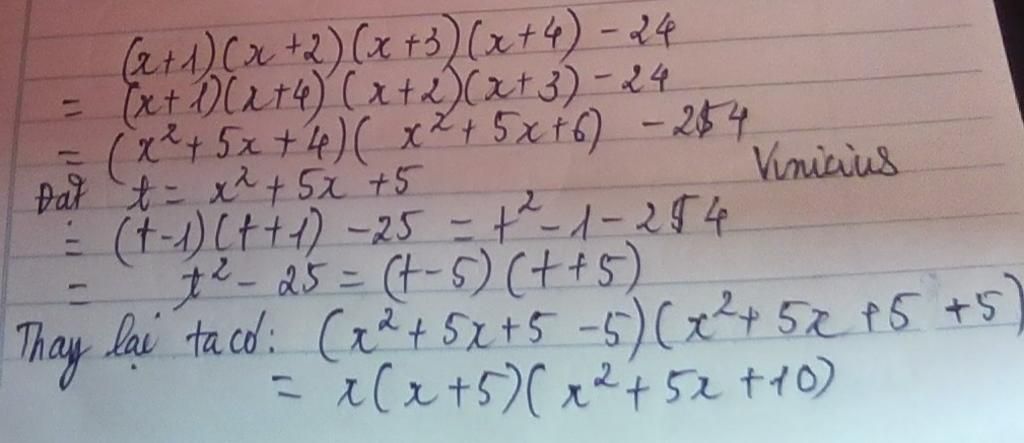 (x+1)(x+2)(x+3)(x+4) - 24
= (x+1)(x+4)(x+2)(x+3) - 24
= (x²+5x+4)(x²+5x+6) - 24
Vinicius
Đặt t = x²+5x+5
= (t-1)(t+1) - 25 = t² - 1 - 24
= t² - 25 = (t-5)(t+5)
Thay lại ta có: (x²+5x+5-5)(x²+5x+5+5)
= x(x+5)(x²+5x+10)